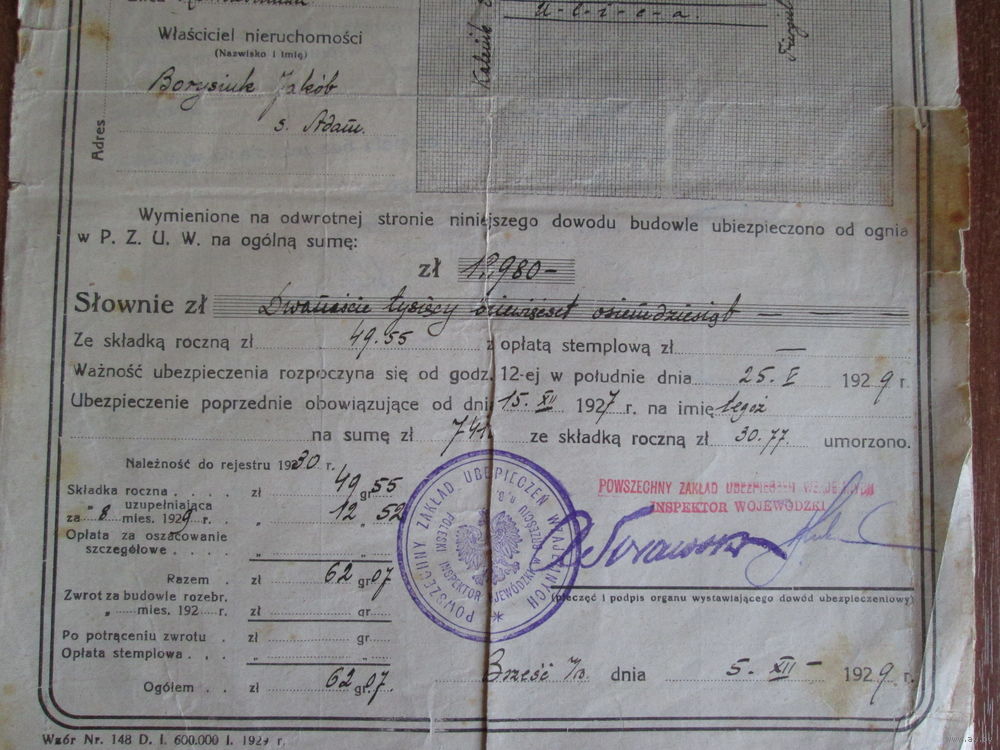 U-l-i-c-a.
Kaleńik
Właściciel nieruchomości
(Nazwisko i imię)
Borysiuk Jakób
s. Adam.
Adres
Wymienione na odwrotnej stronie niniejszego dowodu budowle ubiezpieczono od ognia
w P. Z. U. W. na ogólną sumę:
zł 12.980-
Słownie zł Dwanaście tysięcy dziewięset osiemdziesiąt — — —
Ze składką roczną zł 49.55 z opłatą stemplową zł —
Ważność ubezpieczenia rozpoczyna się od godz. 12-ej w południe dnia 25. V 1929 r.
Ubezpieczenie poprzednie obowiązujące od dnia 15. XII 1927 r. na imię tegoż
na sumę zł 741 ze składką roczną zł 30.77. umorzono.
Należność do rejestru 1930 r.
Składka roczna . . . . zł 49 gr 55
" uzupełniająca
za 8 mies. 1929 r. " 12 " 52
Opłata za oszacowanie
szczegółowe . . . " "
Razem . zł 62 gr 07
Zwrot za budowle rozebr.
" mies. 192 r. zł gr.
Po potrąceniu zwrotu . zł gr.
Opłata stemplowa . . . " "
Ogółem . . zł 62 gr. 07.
POWSZECHNY ZAKŁAD UBEZPIECZEŃ WZAJEMNYCH
POLESKI INSPEKTOR WOJEWÓDZKI W BRZEŚCIU n.B.
POWSZECHNY ZAKŁAD UBEZPIECZEŃ WZAJEMNYCH
INSPEKTOR WOJEWÓDZKI
(pieczęć i podpis organu wystawiającego dowód ubezpieczeniowy)
Brześć n/B. dnia 5. XII - 1929 r.
Wzór Nr. 148 D. I. 600.000 I. 1929 r.